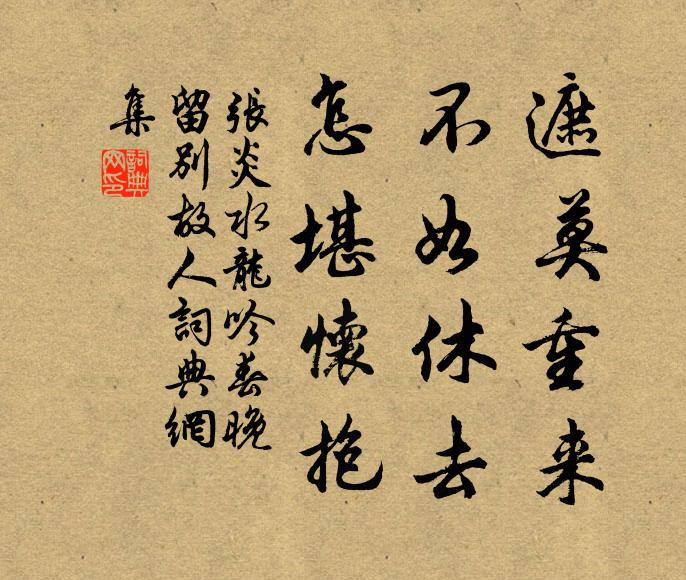 遮莫重来
不如休去
怎堪懷抱
張炎水龍吟春晚
留别故人詞典網
集
詞典網印